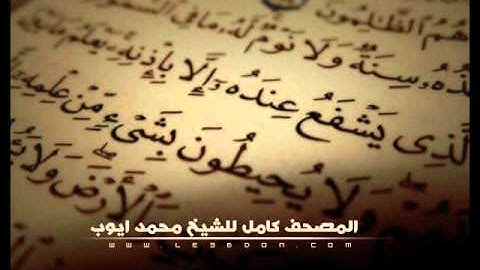 هُمُ الظَّٰلِمُونَ
ذُهُۥ سِنَةٌ وَلَا نَوْمٌ لَّهُۥ مَا فِي
لَّذِي يَشْفَعُ عِندَهُۥٓ إِلَّا بِإِذْنِهِۦ يَعْلَمُ
وَلَا يُحِيطُونَ بِشَيْءٍ مِّنْ عِلْمِهِۦٓ
الْأَرْضَ وَلَا
المصحف كامل للشيخ محمد ايوب